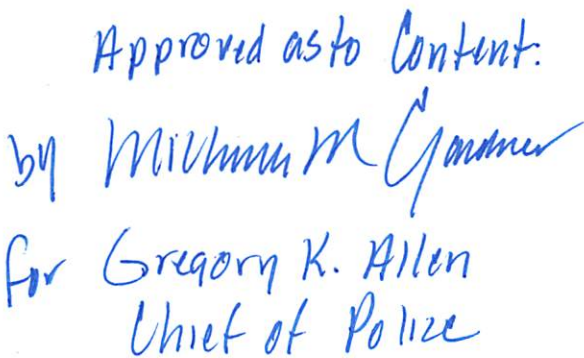 Approved as to Content:
by Michelle M Gardner
for Gregory K. Allen
Chief of Police